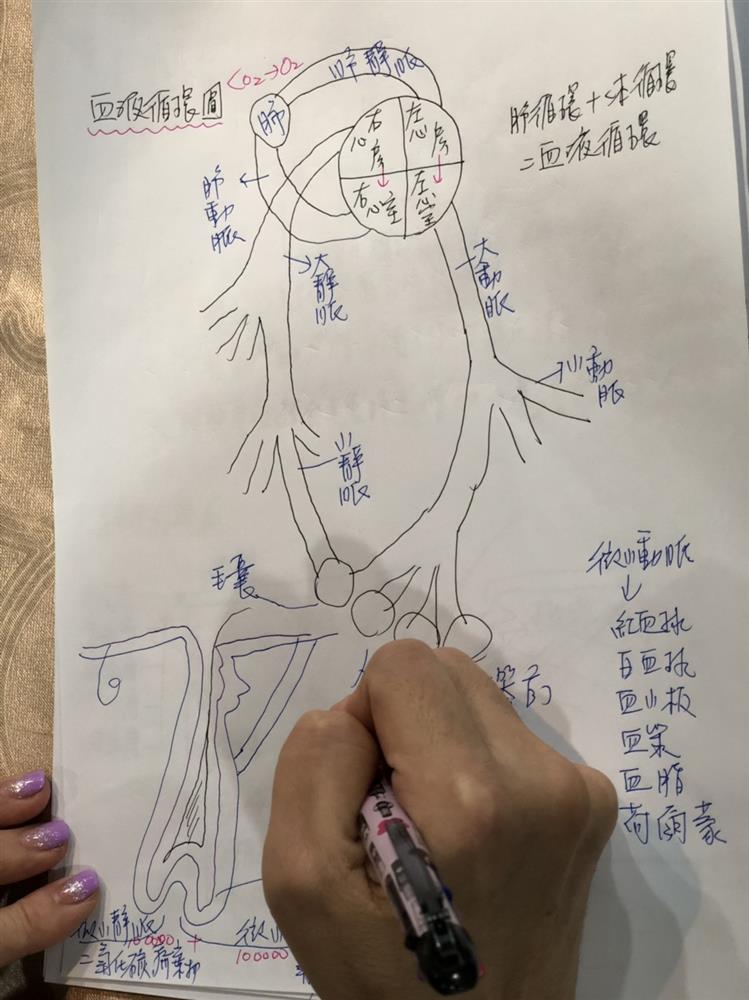 血液循環圖
CO2→O2
肺靜脈
肺
右心房
左心房
右心室
左心室
肺循環+体循環
=血液循環
肺動脈
大靜脈
大動脈
小動脈
小靜脈
毛囊
微小動脈
↓
紅血球
白血球
血小板
血漿
血脂
荷爾蒙
微小靜脈
100000+
二氧化碳
100000